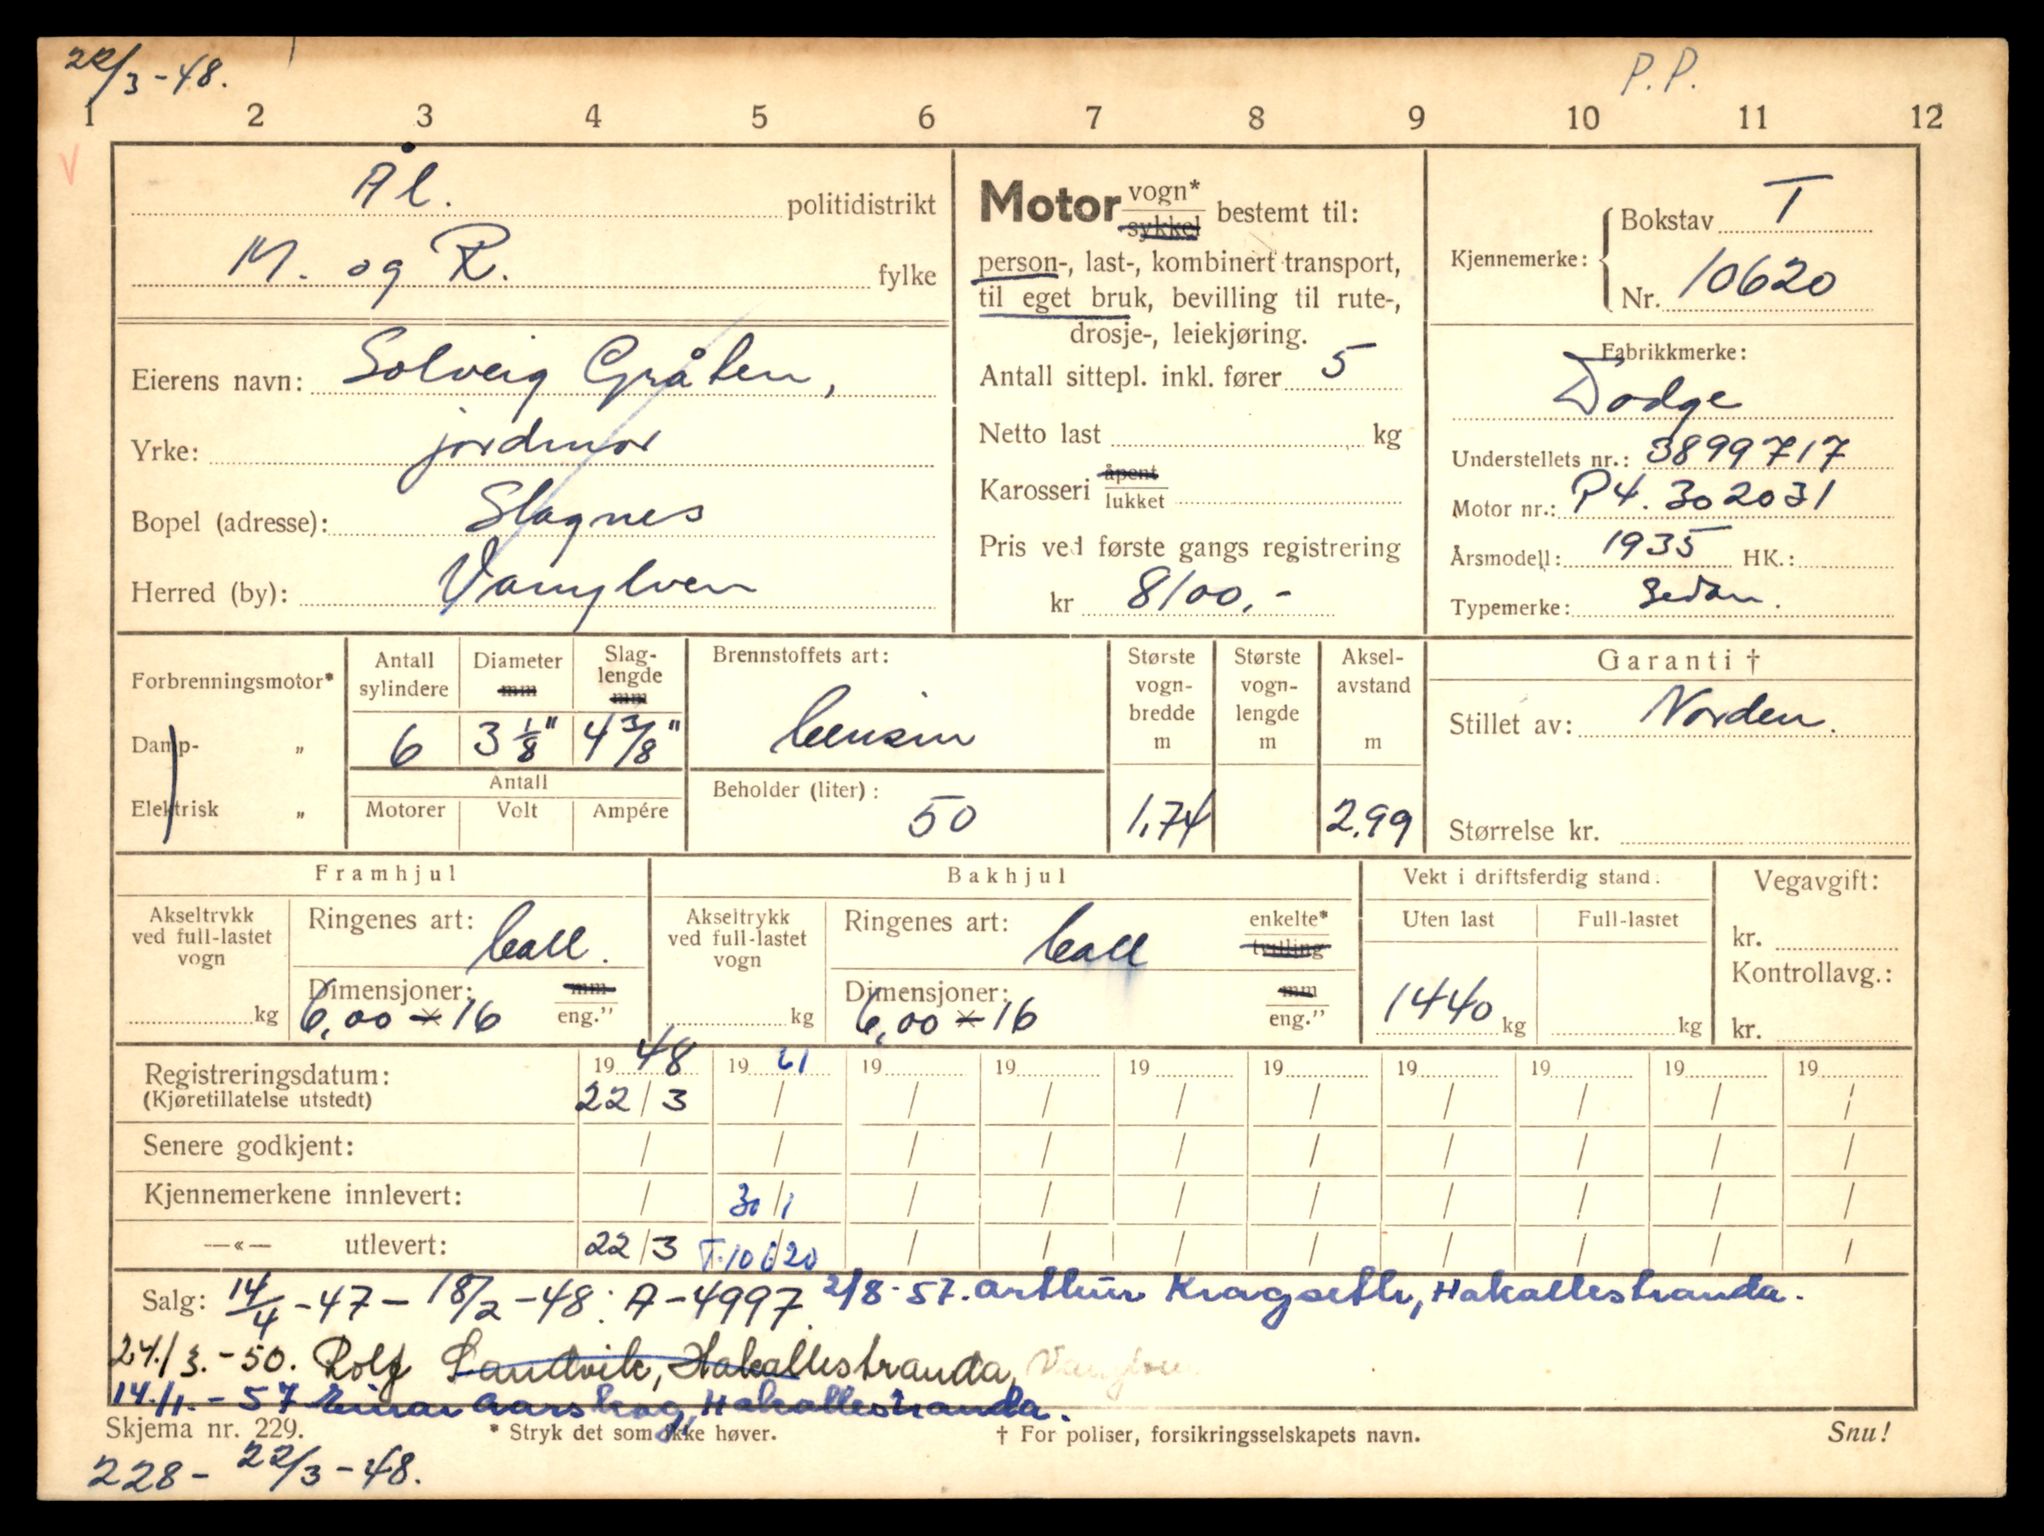 22/3-48.
P.P.
1 2 3 4 5 6 7 8 9 10 11 12
V
Ål. politidistrikt
M. og R. fylke
Eierens navn: Solveig Gråten,
Yrke: jordmor
Bopel (adresse): Slagnes
Herred (by): Vanylven
Motor vogn* sykkel bestemt til:
person-, last-, kombinert transport,
til eget bruk, bevilling til rute-,
drosje-, leiekjøring.
Antall sittepl. inkl. fører 5
Netto last kg
Karosseri åpent lukket
Pris ved første gangs registrering
kr 8100.-
Kjennemerke: Bokstav T
Nr. 10620
Fabrikkmerke:
Dodge
Understellets nr.: 3899717
Motor nr.: P4.302031
Årsmodell: 1935 HK.:
Typemerke: Sedan.
Forbrenningsmotor*
Damp- „
Elektrisk „
Antall sylindere 6
Diameter mm 3 1/8"
Slag-lengde mm 4 3/8"
Antall
Motorer Volt Ampére
Brennstoffets art:
bensin
Beholder (liter):
50
Største vogn-bredde m 1,74
Største vogn-lengde m
Aksel-avstand m 2,99
Garanti †
Stillet av: Norden.
Størrelse kr.
Framhjul
Akseltrykk ved full-lastet vogn kg
Ringenes art: ball.
Dimensjoner: mm eng."
6,00 × 16
Bakhjul
Akseltrykk ved full-lastet vogn kg
Ringenes art: ball enkelte* tvilling
Dimensjoner: mm eng."
6,00 × 16
Vekt i driftsferdig stand.
Uten last Full-lastet
1440 kg kg
Vegavgift:
kr.
Kontrollavg.:
kr.
19 48 19 61 19 19 19 19 19 19 19 19
Registreringsdatum: 22/3 / / / / / / / / /
(Kjøretillatelse utstedt)
Senere godkjent: / / / / / / / / / /
Kjennemerkene innlevert: / 30/1 / / / / / / / /
—«— utlevert: 22/3 T.10620 / / / / / / / /
Salg: 14/4-47 - 18/2-48: A-4997. 2/8-57. Arthur Kragseth, Hakallestranda.
24./3.-50. Rolf Sandvik, Hakallestranda, Vanylven
14./1.-57 Einar Aarskog, Hakallestranda.
Skjema nr. 229. * Stryk det som ikke høver. † For poliser, forsikringsselskapets navn. Snu!
228- 22/3-48.